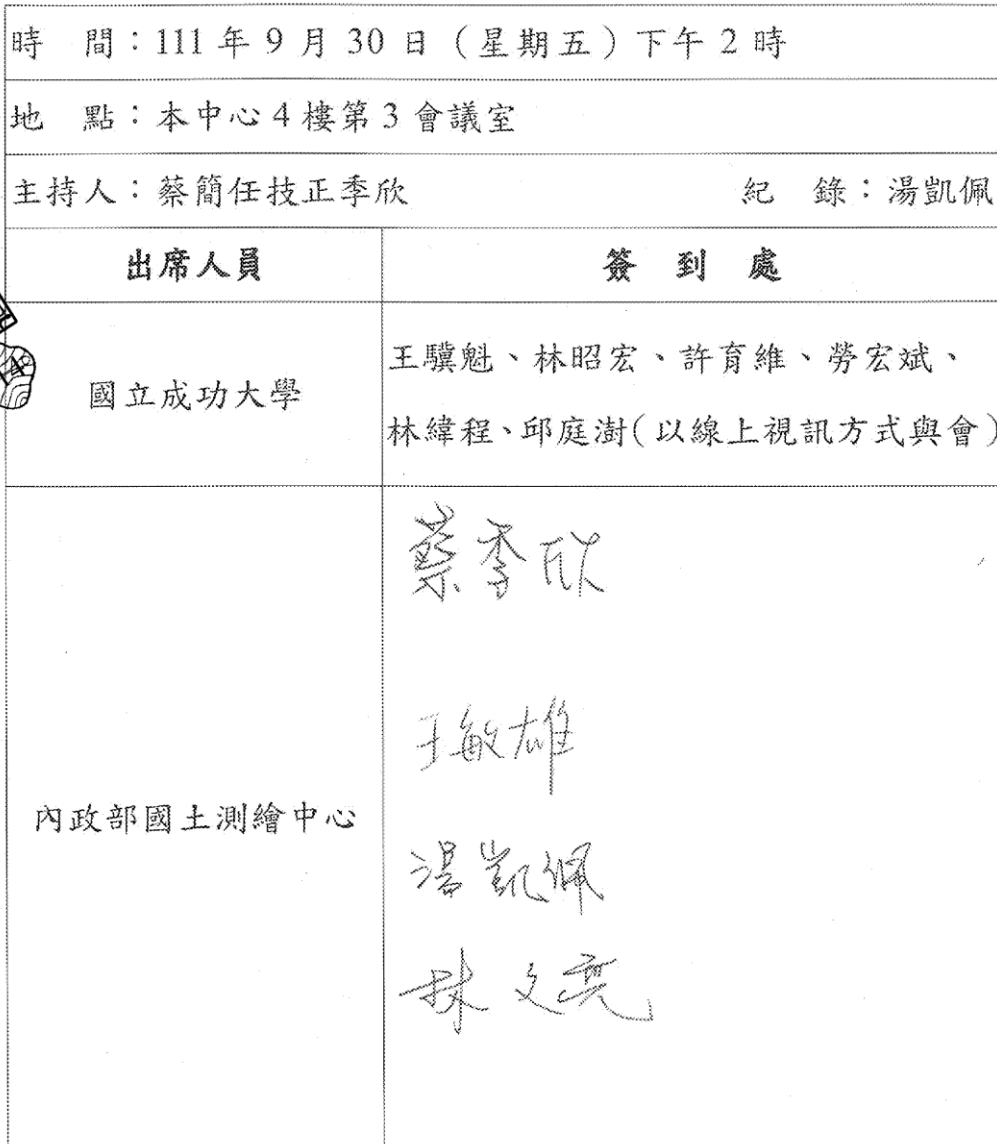 時　間：111 年 9 月 30 日（星期五）下午 2 時
地　點：本中心 4 樓第 3 會議室
主持人：蔡簡任技正季欣　紀　錄：湯凱佩
出席人員　簽　到　處
國立成功大學
王驥魁、林昭宏、許育維、勞宏斌、
林緯程、邱庭澍(以線上視訊方式與會)
內政部國土測繪中心
蔡季欣
王敏雄
湯凱佩
林文亮